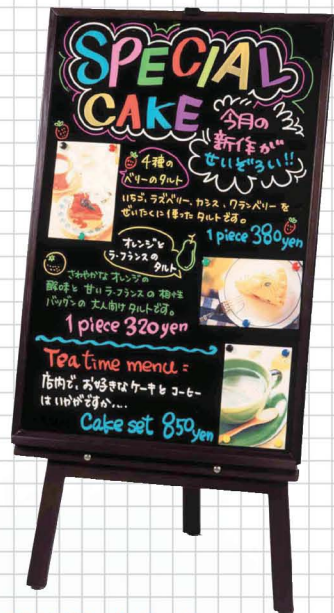 SPECIAL
CAKE
今月の
新作が
せいぞろい!!
4種の
ベリーのタルト
いちご、ラズベリー、カシス、クランベリーを
ぜいたくに使ったタルトです。
1 piece 380yen
オレンジと
ラ・フランスの
タルト
さわやかなオレンジの
酸味と甘いラ・フランスの相性
バツグンの大人向けタルトです。
1 piece 320yen
Tea time menu:
店内で、お好きなケーキとコーヒー
はいかがですか...
Cake set 850yen